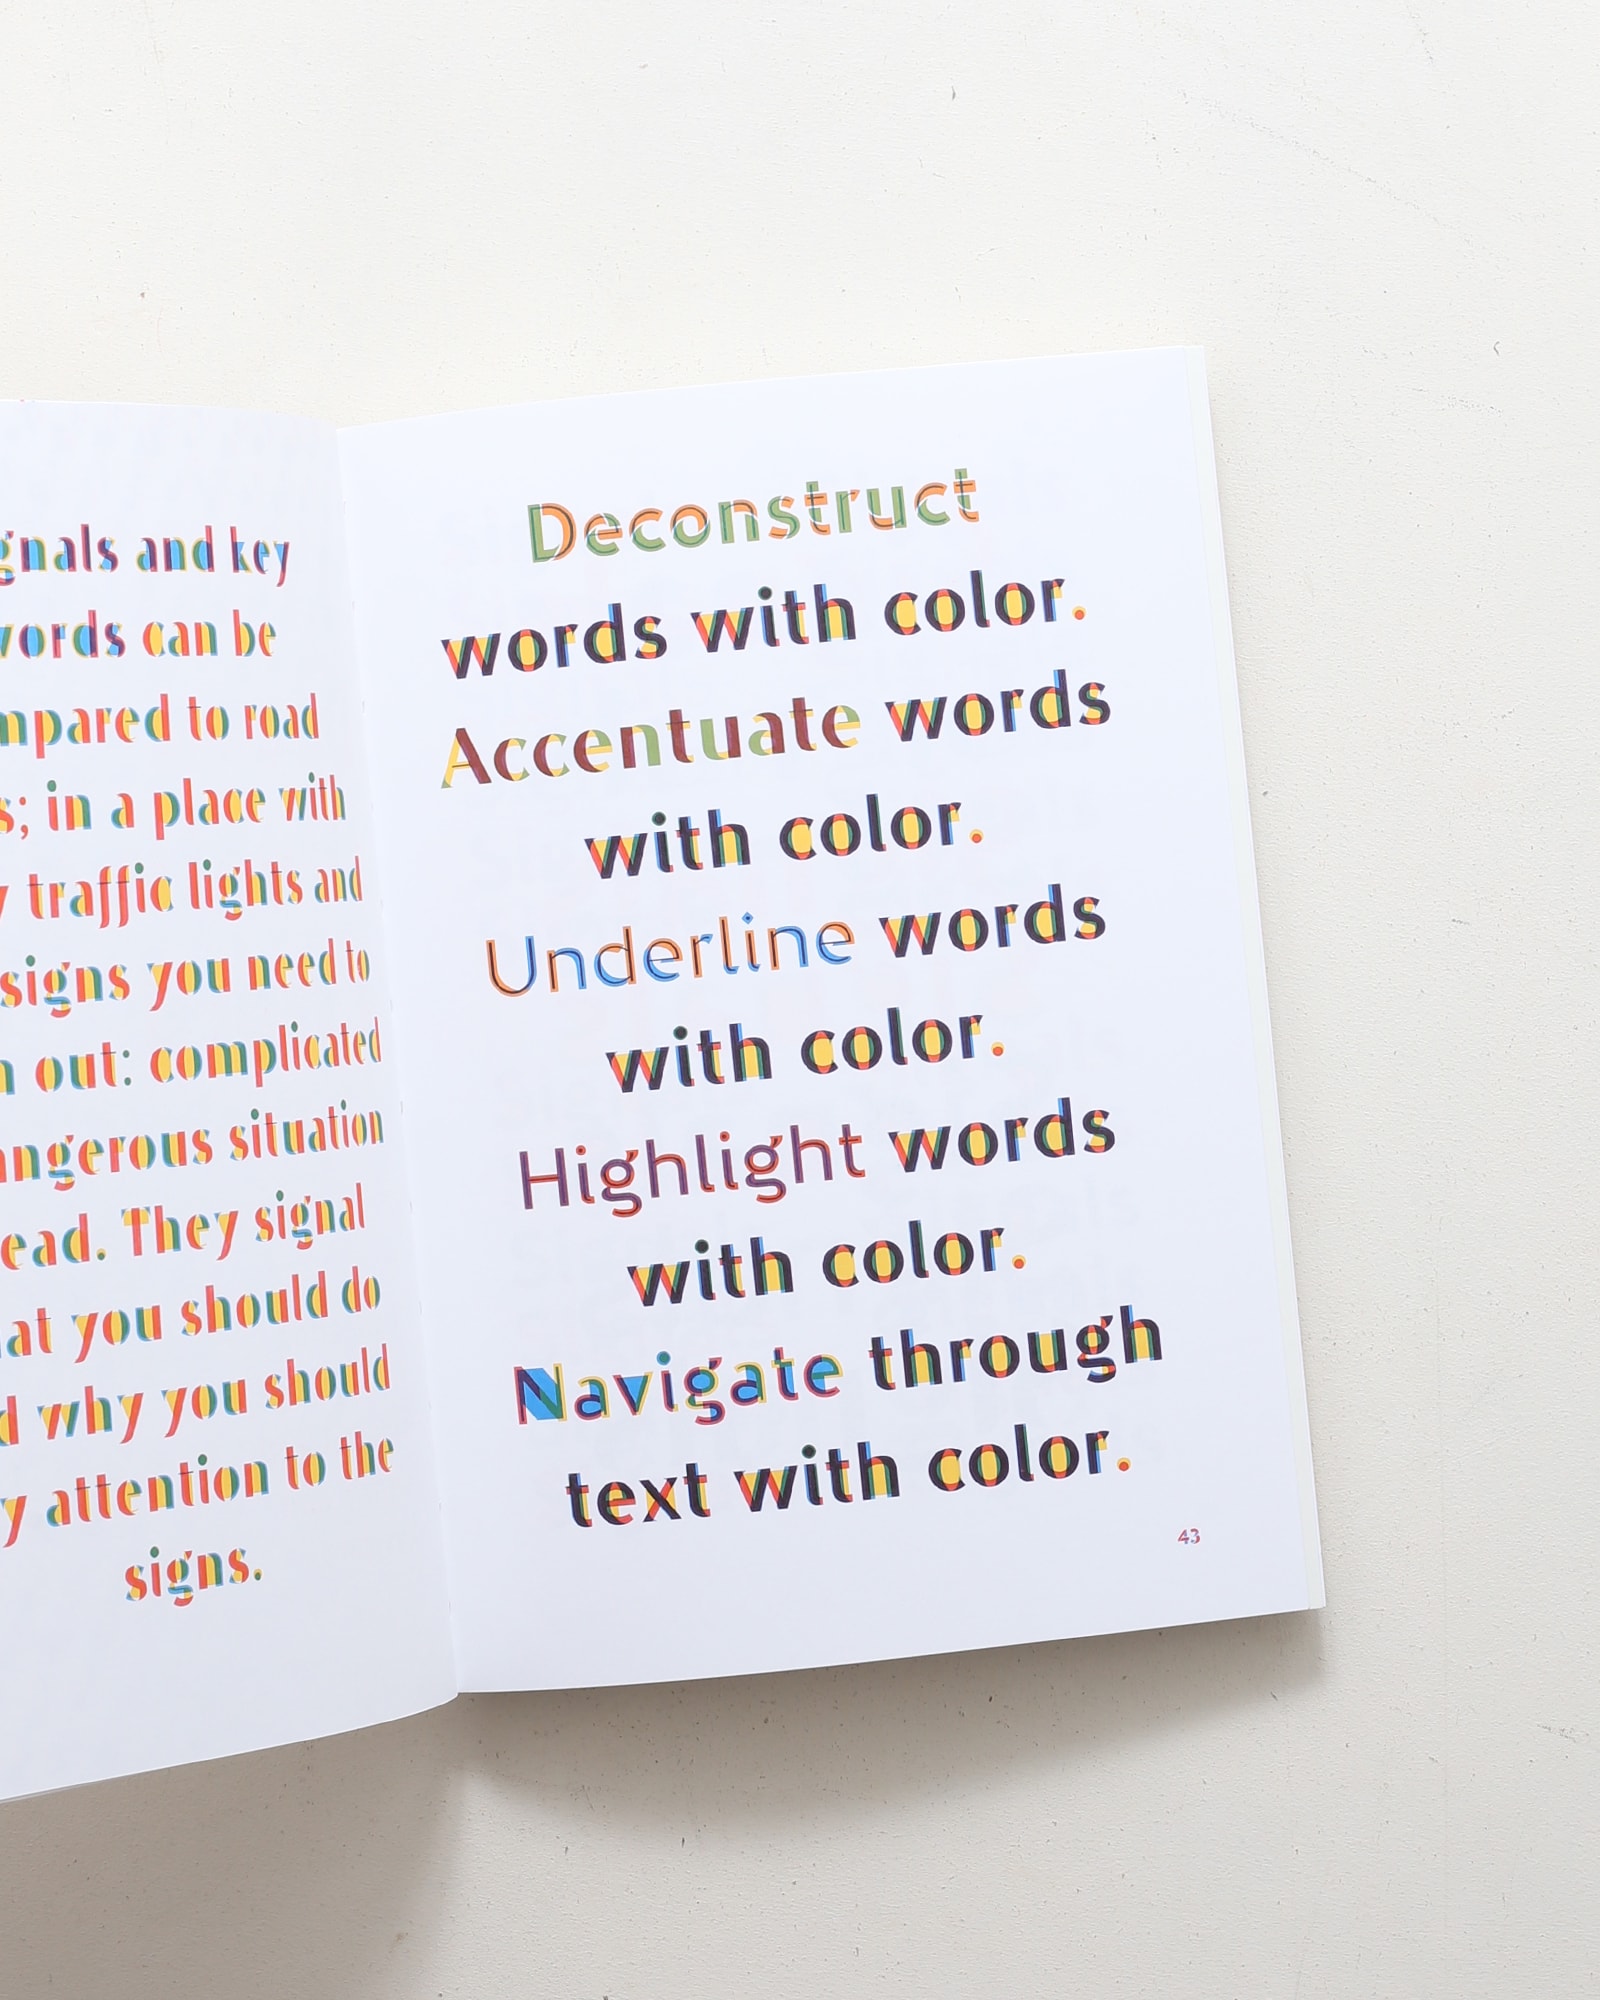 and key
can be
to road
in a place with
traffic lights and
signs you need to
out: complicated
situation
They signal
you should do
why you should
attention to the
signs.
Deconstruct
words with color.
Accentuate words
with color.
Underline words
with color.
Highlight words
with color.
Navigate through
text with color.
43